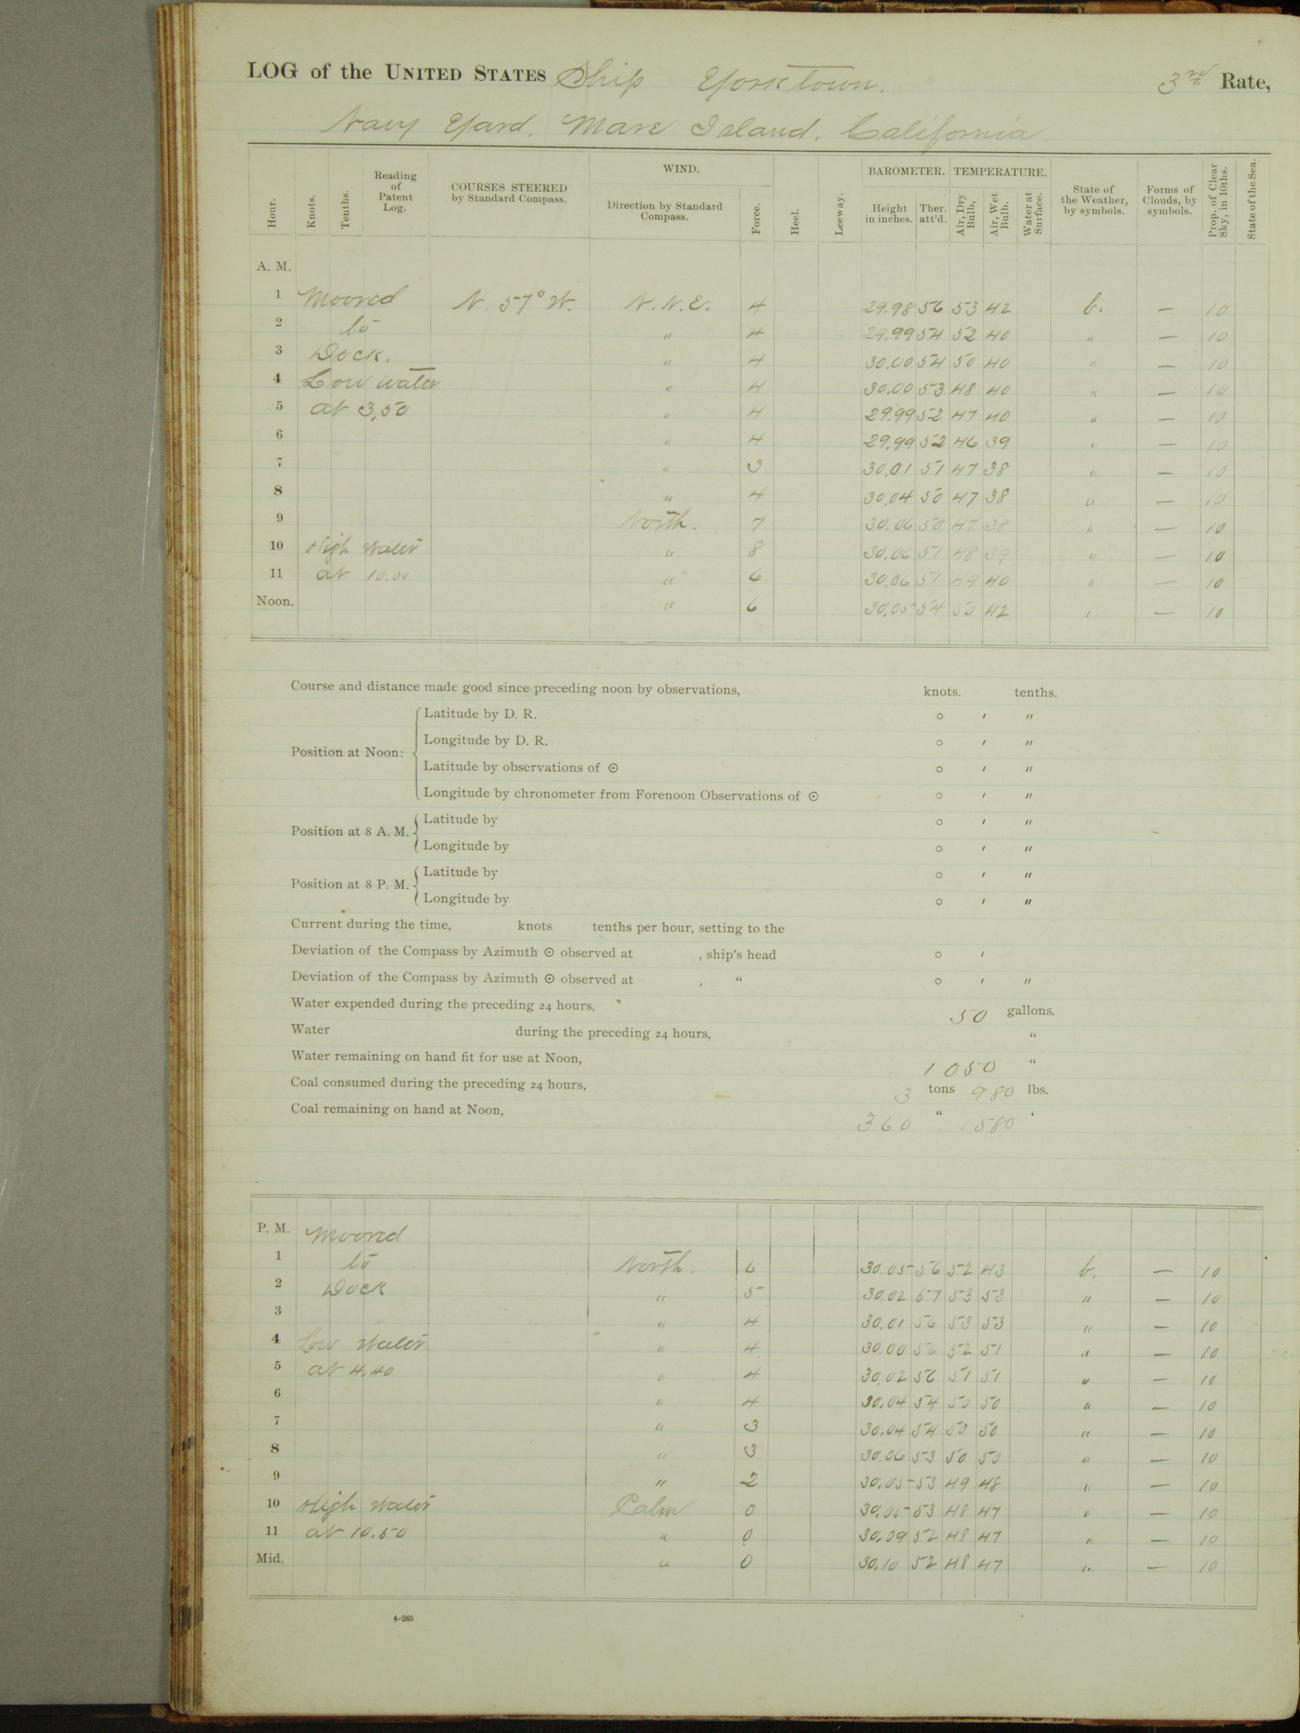 LOG of the UNITED STATES Ship Yorktown. 3rd Rate,
Navy Yard, Mare Island, California
Hour. Knots. Tenths. Reading of Patent Log. COURSES STEERED by Standard Compass. WIND. Direction by Standard Compass. Force. Heel. Leeway. BAROMETER. Height in inches. Ther. att'd. TEMPERATURE. Air, Dry Bulb, Air, Wet Bulb. Water at Surface. State of the Weather, by symbols. Forms of Clouds, by symbols. Prop. of Clear Sky, in 10ths. State of the Sea.
A. M.
1 Moored N. 57° W. N.N.E. 4 29.98 56 53 42 b. — 10
2 to " 4 29.99 54 52 40 " — 10
3 Dock. " 4 30.00 54 50 40 " — 10
4 Low water " 4 30.00 53 48 40 " — 10
5 at 3.50 " 4 29.99 52 47 40 " — 10
6 " 4 29.99 52 46 39 " — 10
7 " 3 30.01 51 47 38 " — 10
8 " 4 30.04 50 47 38 " — 10
9 North. 7 30.06 50 47 38 " — 10
10 High Water " 8 30.06 51 48 39 " — 10
11 at 10.00 " 6 30.06 51 49 40 " — 10
Noon. " 6 30.05 54 53 42 " — 10
Course and distance made good since preceding noon by observations, knots. tenths.
Position at Noon: Latitude by D. R. ° ′ ″
Longitude by D. R. ° ′ ″
Latitude by observations of ☉ ° ′ ″
Longitude by chronometer from Forenoon Observations of ☉ ° ′ ″
Position at 8 A. M. Latitude by ° ′ ″
Longitude by ° ′ ″
Position at 8 P. M. Latitude by ° ′ ″
Longitude by ° ′ ″
Current during the time, knots tenths per hour, setting to the
Deviation of the Compass by Azimuth ☉ observed at , ship's head ° ′
Deviation of the Compass by Azimuth ☉ observed at , " ° ′ ″
Water expended during the preceding 24 hours, 50 gallons.
Water during the preceding 24 hours, "
Water remaining on hand fit for use at Noon, 1050 "
Coal consumed during the preceding 24 hours, 3 tons 980 lbs.
Coal remaining on hand at Noon, 360 " 1580 "
P. M. Moored
1 to North. 6 30.05 56 52 43 b. — 10
2 Dock " 5 30.02 57 53 53 " — 10
3 " 4 30.01 56 53 53 " — 10
4 Low Water " 4 30.00 56 52 51 " — 10
5 at 4.40 " 4 30.02 56 51 51 " — 10
6 " 4 30.04 54 50 50 " — 10
7 " 3 30.04 54 50 50 " — 10
8 " 3 30.06 53 50 50 " — 10
9 " 2 30.05 53 49 48 " — 10
10 High Water Calm 0 30.05 53 48 47 " — 10
11 at 10.50 " 0 30.09 52 48 47 " — 10
Mid. " 0 30.10 52 48 47 " — 10
4-265